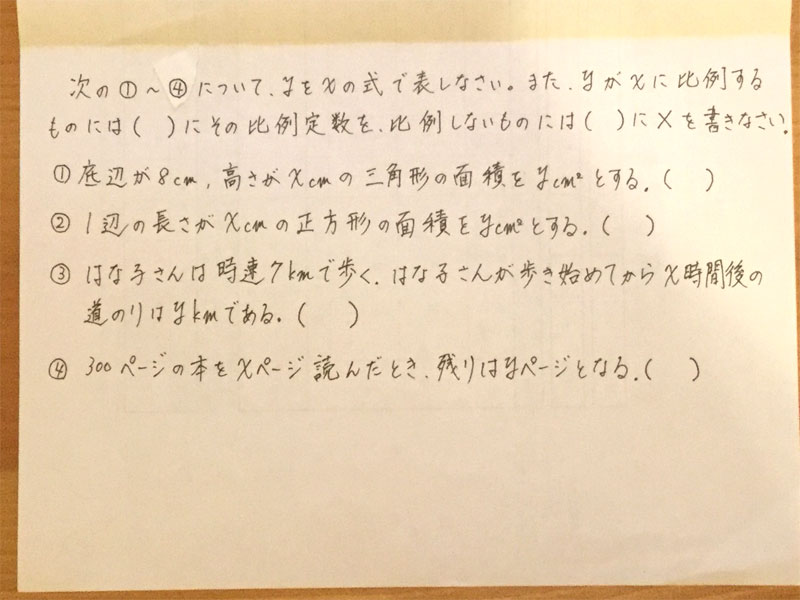 次の①～④について、yをxの式で表しなさい。また、yがxに比例する
ものには( )にその比例定数を、比例しないものには( )に×を書きなさい。
①底辺が8cm,高さがxcmの三角形の面積をycm²とする。( )
② 1辺の長さがxcmの正方形の面積をycm²とする。( )
③ はな子さんは時速7kmで歩く。はな子さんが歩き始めてからx時間後の
道のりはykmである。( )
④ 300ページの本をxページ読んだとき、残りはyページとなる。( )